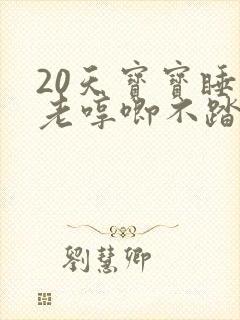 20天寶寶睡
老哼唧不踏
劉慧卿